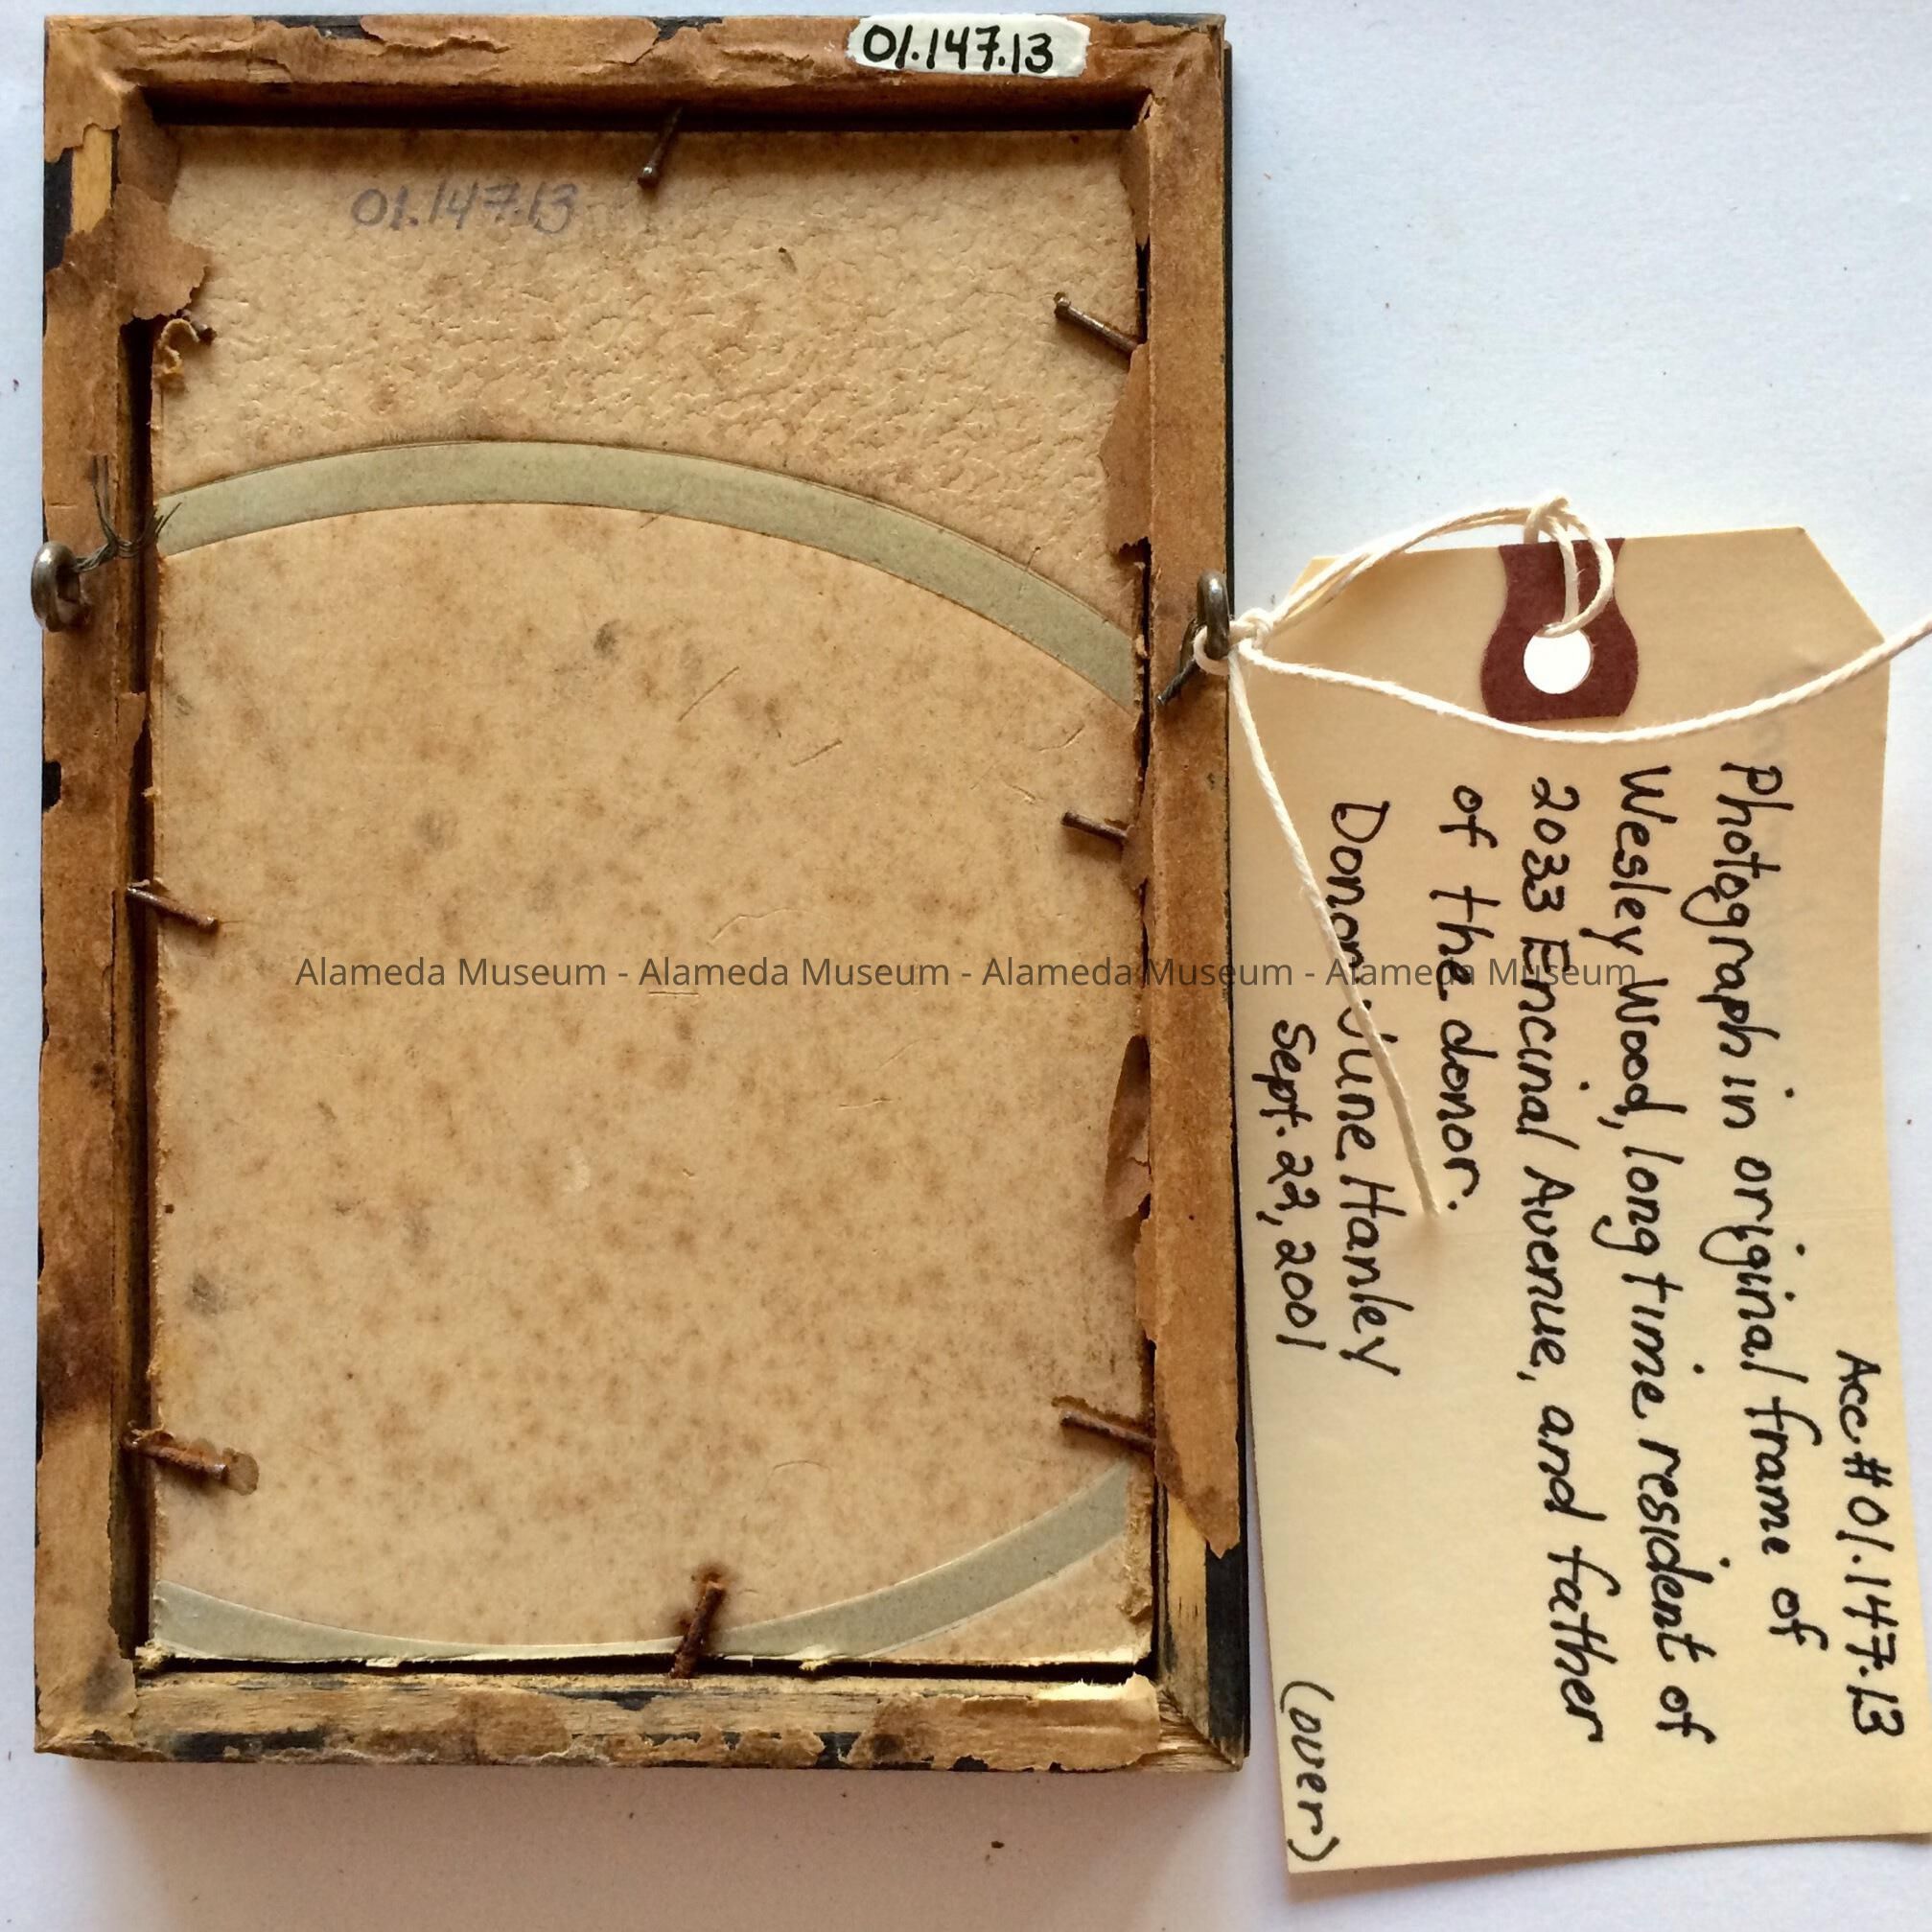 01.147.13
01.147.13
Acc.# 01.147.13
Photograph in original frame of
Wesley Wood, long time resident of
2033 Encinal Avenue, and father
of the donor.
Donor: June Hanley
Sept. 22, 2001
(over)
Alameda Museum - Alameda Museum - Alameda Museum - Alameda Museum